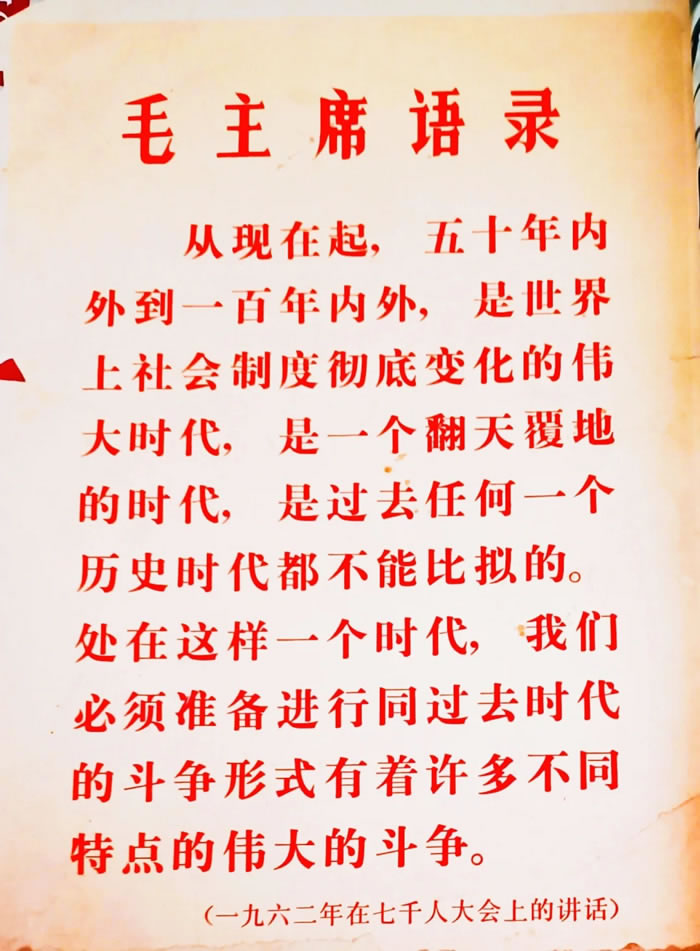 毛主席语录
从现在起，五十年内
外到一百年内外，是世界
上社会制度彻底变化的伟
大时代，是一个翻天覆地
的时代，是过去任何一个
历史时代都不能比拟的。
处在这样一个时代，我们
必须准备进行同过去时代
的斗争形式有着许多不同
特点的伟大的斗争。
（一九六二年在七千人大会上的讲话）